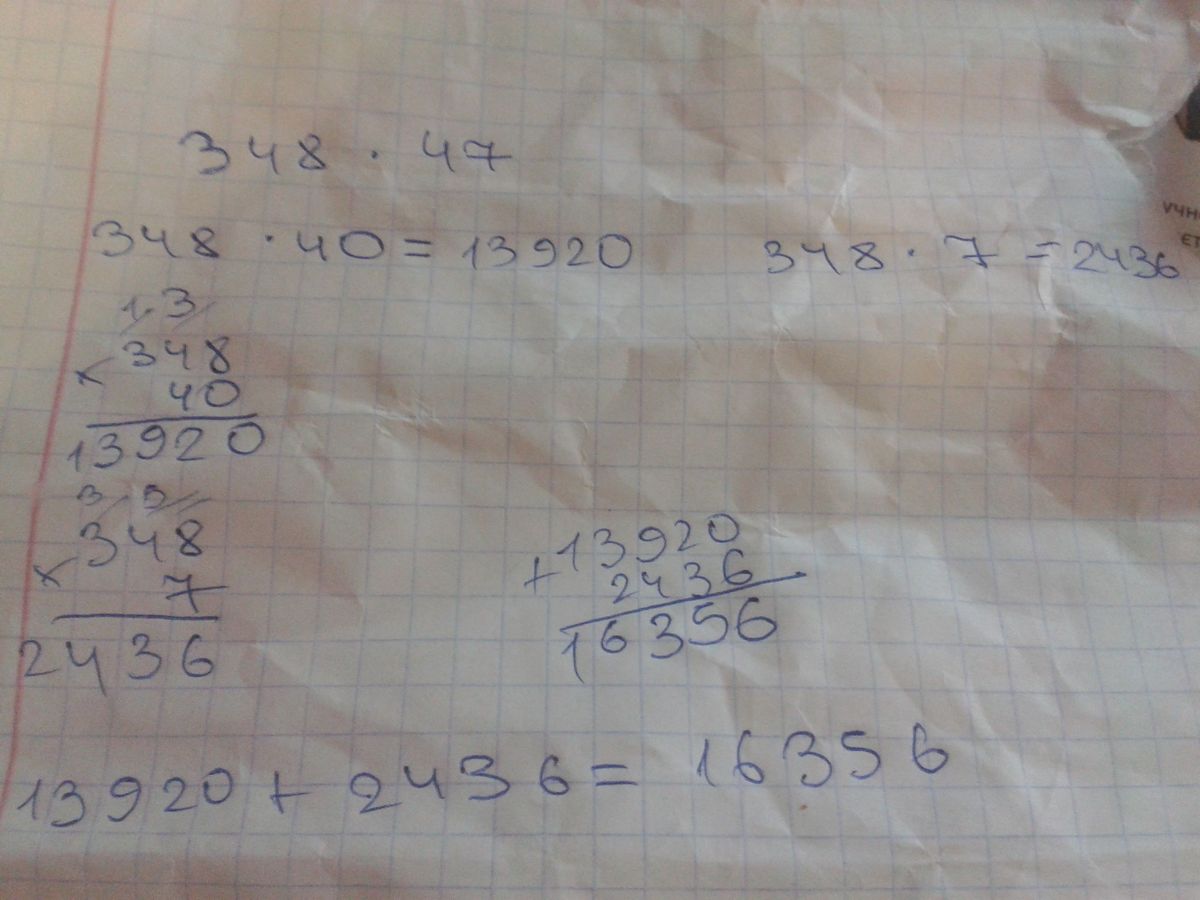 348 · 47
348 · 40 = 13920 348 · 7 = 2436
1 3
× 348
40
13920
3 5
× 348
7
2436
+ 13920
2436
16356
13920 + 2436 = 16356
УЧН
ЄТ